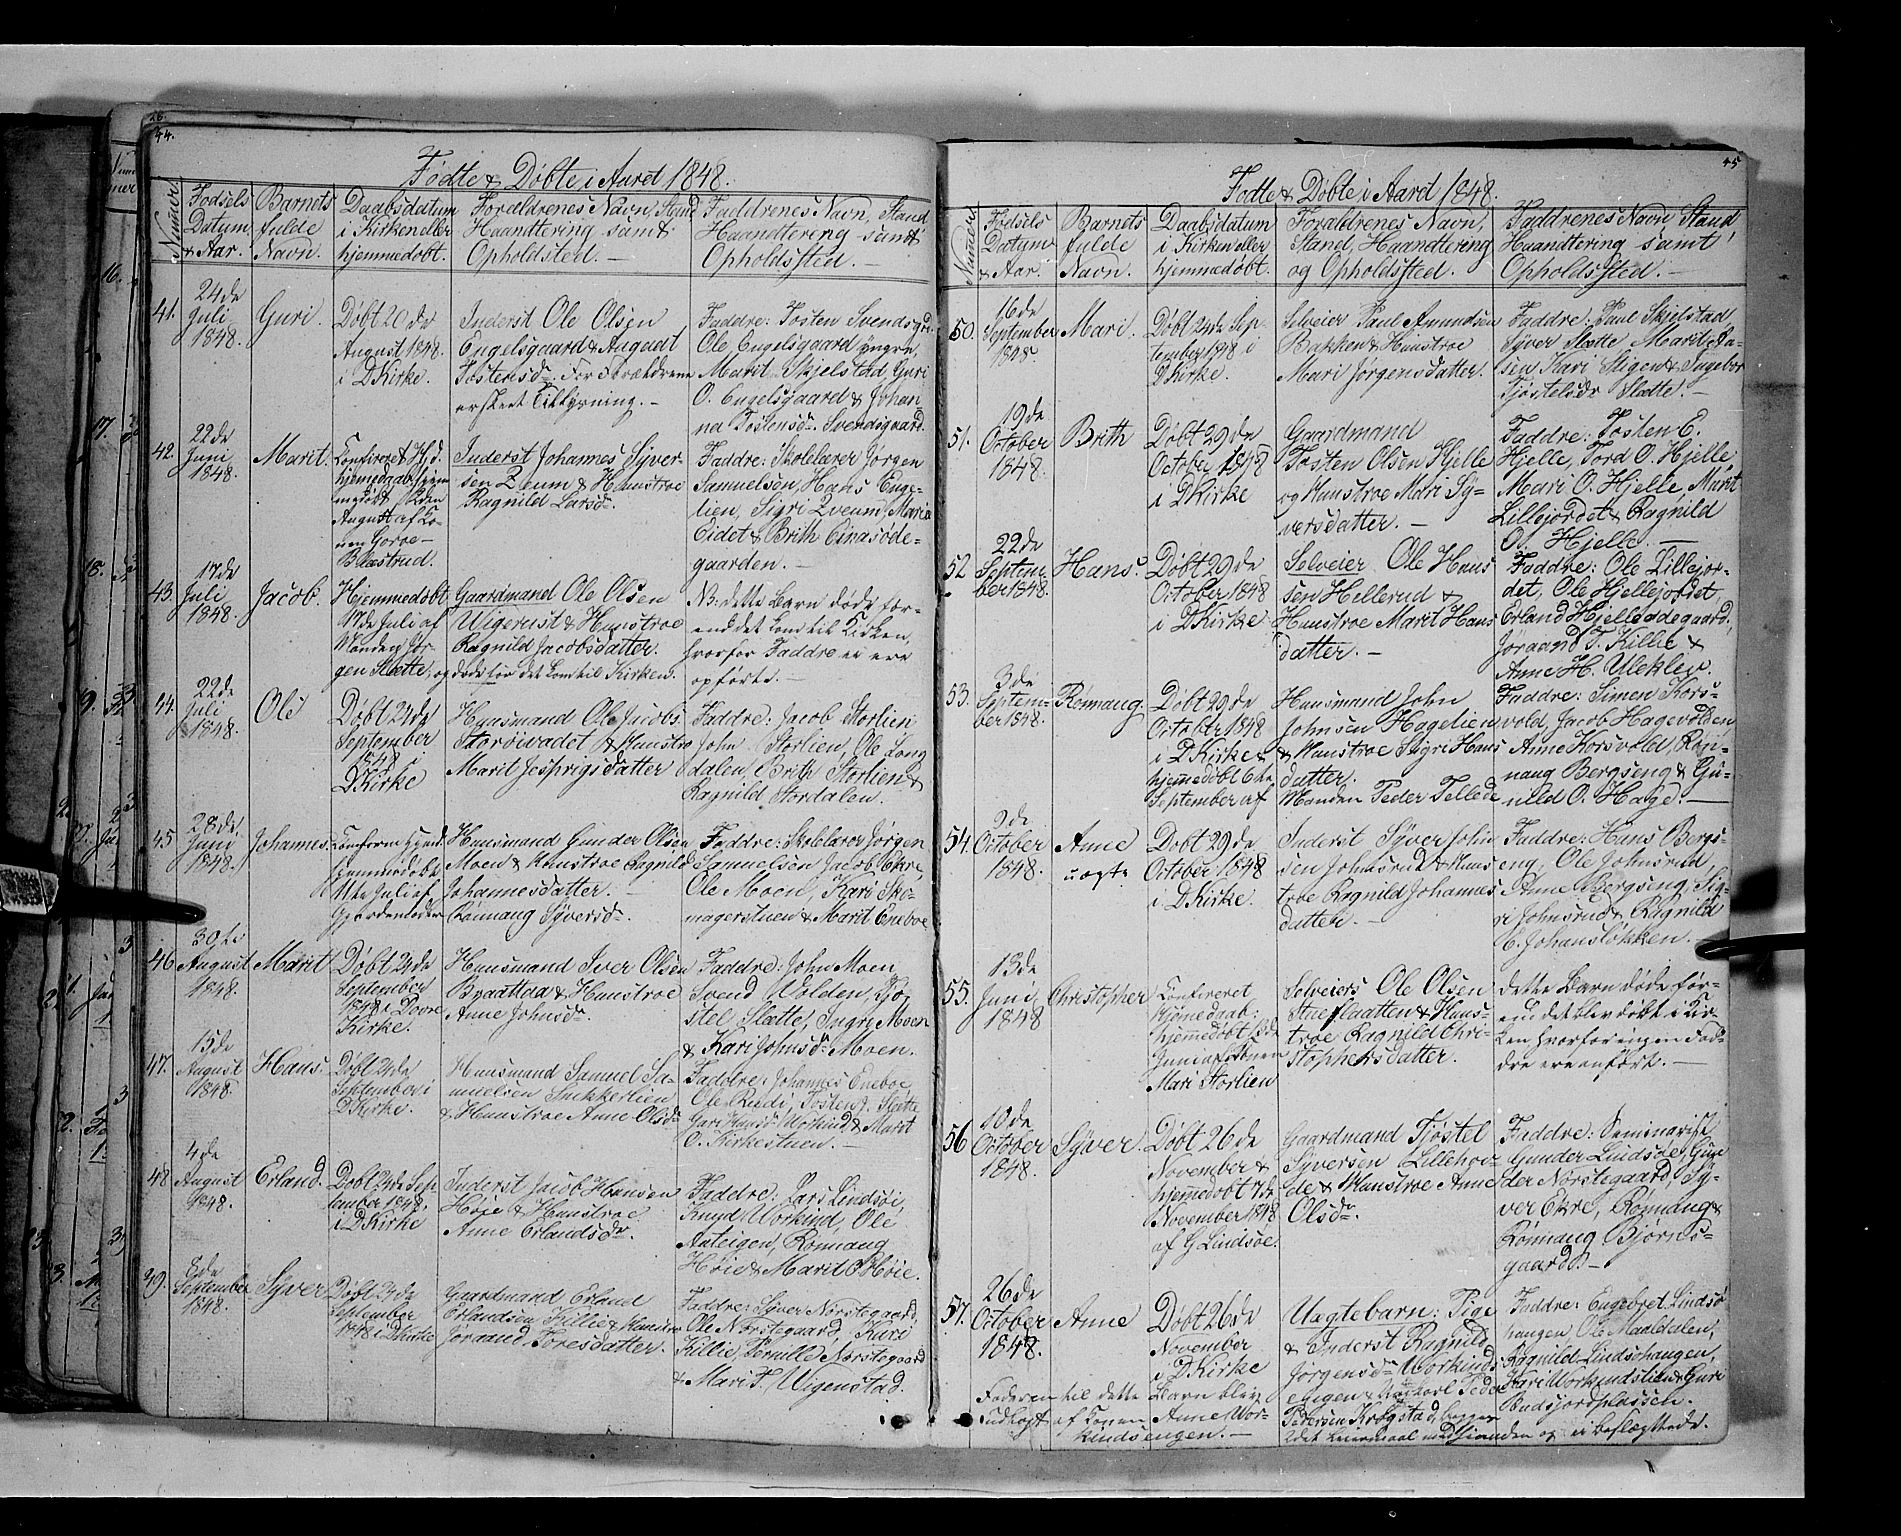 44.
Fødte & Døbte i Aaret 1848.
Nummer.
Fødsels Datum & Aar.
Barnets fulde Navn.
Daabsdatum i Kirken eller hjemmedøbt.
Forældrenes Navn, Stand Haandtering samt Opholdsted. —
Faddrenes Navn, Stand Haandtering samt Opholdsted. —
41.
24de Juli 1848.
Guri.
Døbt 20de
August 1848.
i D Kirke.
Inderst Ole Olsen
Engelsgaard & August
Tostensdr. For Forældrene
er skeet Tillysning. —
Faddre: Tosten Svendsgrd.
Ole Engelsgaard yngre,
Marit Skjelstad, Guri
O. Engelsgaard & Johan
na Tostensdr. Svendsgaard.
42.
22de Juni 1848.
Marit.
Confireret Hj. d.
hjemedaab hjem
medøbt
August af Ko-
nen Goroe
Blæstrud.
Inderst Johannes Syver-
sen Zeum & Hunstroe
Ragnild Larsdr.
Faddre: Skolelærer Jørgen
Samuelsen, Hans Enge-
lien, Sigri Zveum, Marie
Eidet & Brith Einasøde-
gaarden. —
43.
17de Juli 1848.
Jacob.
Hjemmedøbt
17de Juli af
Manden Jør-
gen Slette, og døde før det kom til Kirken.
Gaardmand Ole Olsen
Wigerust & Hunstroe
Ragnild Jacobsdatter.
NB: dette Barn døde før-
end det kom til Kirken,
hvorfor Faddre ei ere
opførte. —
44.
22de Juli 1848.
Ole
Døbt 24de
September
1848 i
D Kirke
Huusmand Ole Jacobs
Storøivadet & Hunstro
Marit Jesprigsdatter
Faddre: Jacob Storlien
John Storlien, Ole Long
dalen, Brith Storlien &
Ragnild Stordalen.
45
28de Juni 1848.
Johannes.
hjemmedøbt
11te Juli af
Gjordemoder
Rønnaug Syversdr.
Huusmand Gunder Olsen
Moen & Hunstroe Ragnild
Johannesdatter. —
Faddre: Skolelærer Jørgen
Samuelsen, Jacob Ekre,
Ole Moen, Kari Sko-
magerstuen & Marit Eneboe
46
30te August 1848.
Marit
Døbt 24de
September
1848 i Dovre
Kirke.
Huusmand Iver Olsen
Byaattaa & Hunstroe
Anne Johnsdr.
Faddre: John Moen,
Svend Volden, Tjø-
stel Slette, Ingri Moen
& Kari Johnsdr Moen.
47.
15de August 1848.
Hans.
Døbt 24de
September i
D Kirke.
Huusmand Samuel Sa-
muelsen Snikkerlien
& Hunstroe Anne Olsdr
Faddre: Johannes Eneboe
Ole Rudi, Tosten J. Slette
Guri Hansd. Workind & Marit
O. Kirkestuen. —
48
4de August 1848.
Erland.
Døbt 24de Sep-
tember 1848,
i D Kirke
Inderst Jacob Hansen
Høie & Hunstroe
Anne Erlandsdr.
Faddre: Lars Lindsøi,
Knud Workind, Ole
Asteigen, Rønnaug
Høie & Marit O Høie.
49.
8de September 1848.
Syver
Døbt 24de
September
1848 i D Kirke
Gaardmand Erland
Erlandsen Killie & Hunstro
Joraand Toresdatter.
Faddre: Syver Norstegaard,
Ole Norstegaard, Kari
Killie, Pernille Norstegaard
& Mari T. Wigenstad.
45
Fødte & Døbte i Aaret 1848.
Nummer.
Fødsels Datum & Aar.
Barnets fulde Navn.
Daabsdatum i Kirken eller hjemmedøbt.
Forældrenes Navn, Stand, Haandtering og Opholdsted. —
Faddrenes Navn, Stand, Haandtering samt Opholdsted. —
50.
16de September 1848
Mari.
Døbt 24de Sep-
tember 1848 i
D Kirke.
Selveier Paul Amundsen
Bakken & Hunstroe
Mari Jørgensdatter.
Faddre: Paul Skjelstad
Syver Slette Marit Pa-
sen Kari Stigen & Ingebor
Tjøstelsdr Slette. —
51.
19de October 1848.
Brith
Døbt 29de
October 1848
i D Kirke
Gaardmand
Tosten Olsen Hjelle
og Hunstroe Mari Sy-
versdatter. —
Faddre: Tosten E.
Hjelle, Tord O. Hjelle
Mari O. Hjelle Marit
Lillejordet & Ragnild
O. Hjelle. —
52.
22de September 1848.
Hans.
Døbt 29de
October 1848
i D Kirke
Selveier Ole Hans
sen Hellerud &
Hunstroe Marit Hans
datter. —
Faddre: Ole Lillejor-
det, Ole Hjellejordet,
Erland Hjelleødegaard,
Jøraand T. Killie &
Anne H. Uleklev.
53.
3de September 1848.
Rønnaug.
Døbt 29de
October 1848
i D Kirke &
hjemmedøbt 6te
September af
Manden Peder Tellede
Huusmand John
Johnsen Hagelien
& Hunstroe Sigri Hans
datter.
Faddre: Simen Kors-
vold, Jacob Hagevolden
Anne Korsvold Røn-
naug Bergseng & Gu-
nild O. Hage. —
54.
9de October 1848.
Anne
uægte
Døbt 29de
October 1848
i D Kirke.
Inderst Syver John
sen Johnsrud & Huus
troe Ragnild Johannes
datter. —
Faddre: Hans Bergs-
eng, Ole Johnsrud,
Anne Bergseng, Sig-
ri Johnsrud & Ragnild
E. Johansløkken. —
55.
13de Juni 1848
Christopher
Confireret
hjemedaab:
hjemmedøbt
Juni af Konen
Mari Storlien
Selveiers Ole Olsen
Stueflaatten & Huus-
troe Ragnild Chri-
stophersdatter.
Dette Barn døde før-
end det blev døbt i Kir-
ken, hvorfor ingen Fad-
dre ere anført. —
56
10de October 1848.
Syver.
Døbt 26de
November &
hjemmedøbt 7de
November 1848
af G Lindsøe.
Gaardmand Tjøstel
Syversen Lillehov-
de & Hunstroe Anne
Olsdr.
Faddre: Seminarist
Gunder Lindsøe, Gun
der Norstegaard, Sy-
ver Ekre, Rønnaug &
Rønnaug Bjørns-
gaard —
57.
26de October 1848.
Anne
Døbt 26de
November
i D Kirke
Uægtebarn: Pige
& Inderst Ragnild
Jørgensdr Workinds
engen & Ungkarl Peder
Pedersen Krogstad, begges
2det Leiermaal med hinanden og ei beslægtede.
Faddre: Engebret Lindsø
haugen, Ole Maaldalen,
Ragnild Lindsøhaugen,
Kari Workindslien & Guri
Budsjordplassen.
Faderen til dette Barn blev
udlagt af Konen Anne Wor-
kindsengen. —